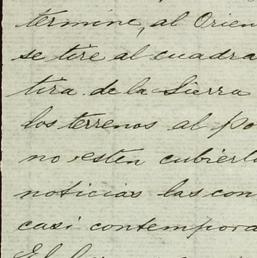 termine, al Orien
se tire al cuadra
tira de la Sierra
los terrenos al po
no esten cubiert
noticias las con
casi contempora
El